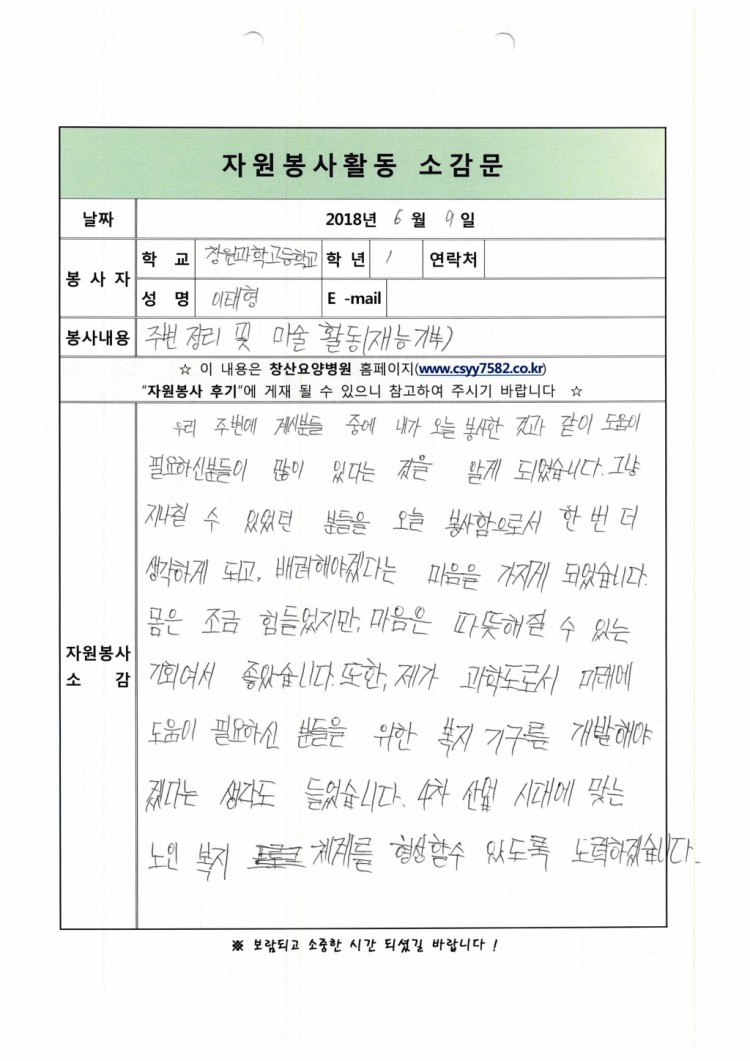 자원봉사활동 소감문
날짜 2018년 6 월 9 일
봉 사 자 학 교 창원과학고등학교 학 년 1 연락처
성 명 이태형 E -mail
봉사내용 주변 정리 및 마술 활동(재능기부)
☆ 이 내용은 창산요양병원 홈페이지(www.csyy7582.co.kr)
"자원봉사 후기"에 게재 될 수 있으니 참고하여 주시기 바랍니다 ☆
자원봉사
소 감
우리 주변에 계신분들 중에 내가 오늘 봉사한 것과 같이 도움이
필요하신분들이 많이 있다는 것을 알게 되었습니다. 그냥
지나칠 수 있었던 분들을 오늘 봉사함으로서 한 번 더
생각하게 되고, 배려해야겠다는 마음을 가지게 되었습니다.
몸은 조금 힘들었지만, 마음은 따뜻해질 수 있는
기회여서 좋았습니다. 또한, 제가 과학도로서 미래에
도움이 필요하신 분들을 위한 복지 기구를 개발해야
겠다는 생각도 들었습니다. 4차 산업 시대에 맞는
노인 복지 체제를 형성할수 있도록 노력하겠습니다.
※ 보람되고 소중한 시간 되셨길 바랍니다 !